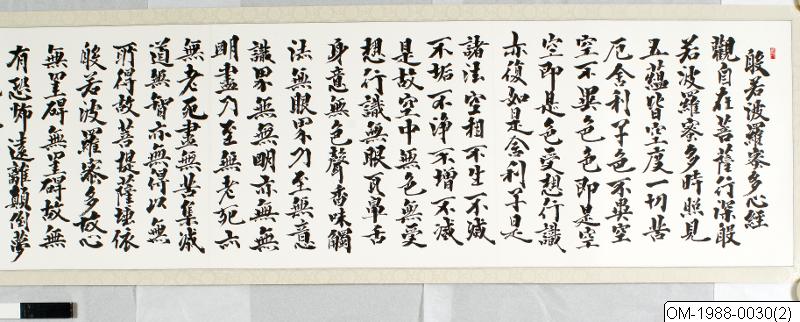 般若波羅蜜多心經
觀自在菩薩行深般
若波羅蜜多時照見
五蘊皆空度一切苦
厄舍利子色不異空
空不異色色即是空
空即是色受想行識
亦復如是舍利子是
諸法空相不生不滅
不垢不淨不增不減
是故空中無色無受
想行識無眼耳鼻舌
身意無色聲香味觸
法無眼界乃至無意
識界無無明亦無無
明盡乃至無老死亦
無老死盡無苦集滅
道無智亦無得以無
所得故菩提薩埵依
般若波羅蜜多故心
無罣碍無罣碍故無
有恐怖遠離顛倒夢
OM-1988-0030(2)